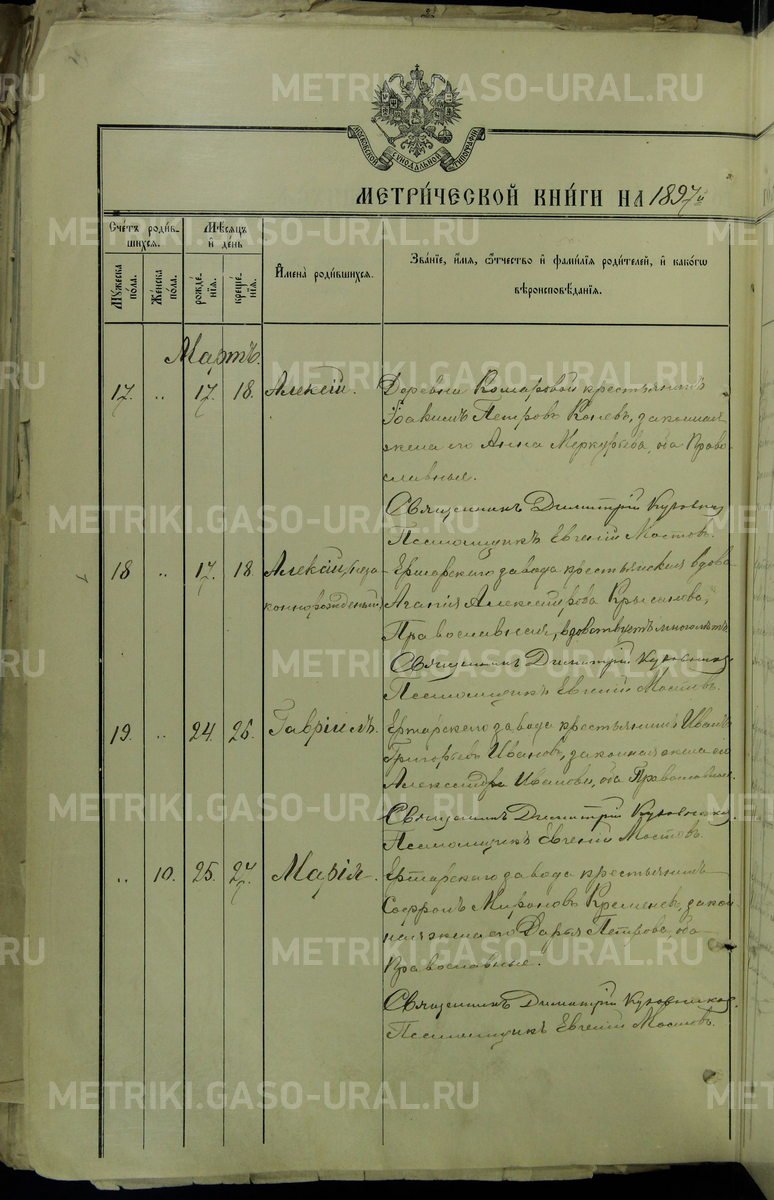 МОСКОВСКОЙ СУНОДАЛЬНОЙ ТИПОГРАФИИ
МЕТРИ́ЧЕСКОЙ КНИ́ГИ НА 1897й
Сче́тъ роди́в-
шихся.
Мѣ́сяцъ
и҆ де́нь
Мꙋ́жеска
по́ла.
Же́нска
по́ла.
рожде́-
нїѧ.
креще́-
нїѧ.
И҆мена̀ роди́вшихся.
Зва́нїе, и҆́мѧ, ѻ҆́тчество и҆ фами́лїѧ роди́телей, и҆ како́гѡ
вѣроисповѣ́данїѧ.
Мартъ.
17 .. 17. 18. Алексій. Деревни Комаровой крестьянинъ
Іоакимъ Петровъ Коневъ, законная
жена его Анна Меркурьева, оба Право-
славные.
Священникъ Димитрій
Псаломщикъ Евгеній Мостовъ.
18 .. 17. 18. Алексій, (неза- Ертарскаго завода крестьянская вдова
коннорожденный) Агапія Александрова Крысанова,
Православная, вдовствуетъ много лѣтъ
Священникъ Димитрій
Псаломщикъ Евгеній Мостовъ.
19. .. 24. 25. Гавріилъ. Ертарскаго завода крестьянинъ Иванъ
Григорьевъ Ивановъ, законная жена его
Александра Иванова, оба Православные.
Священникъ Димитрій
Псаломщикъ Евгеній Мостовъ.
.. 10. 25. 27. Марія. Ертарскаго завода крестьянинъ
Софронъ Мироновъ Кремневъ, закон-
ная жена его Дарья Петрова, оба
Православные.
Священникъ Димитрій
Псаломщикъ Евгеній Мостовъ.
METRIKI.GASO-URAL.RU